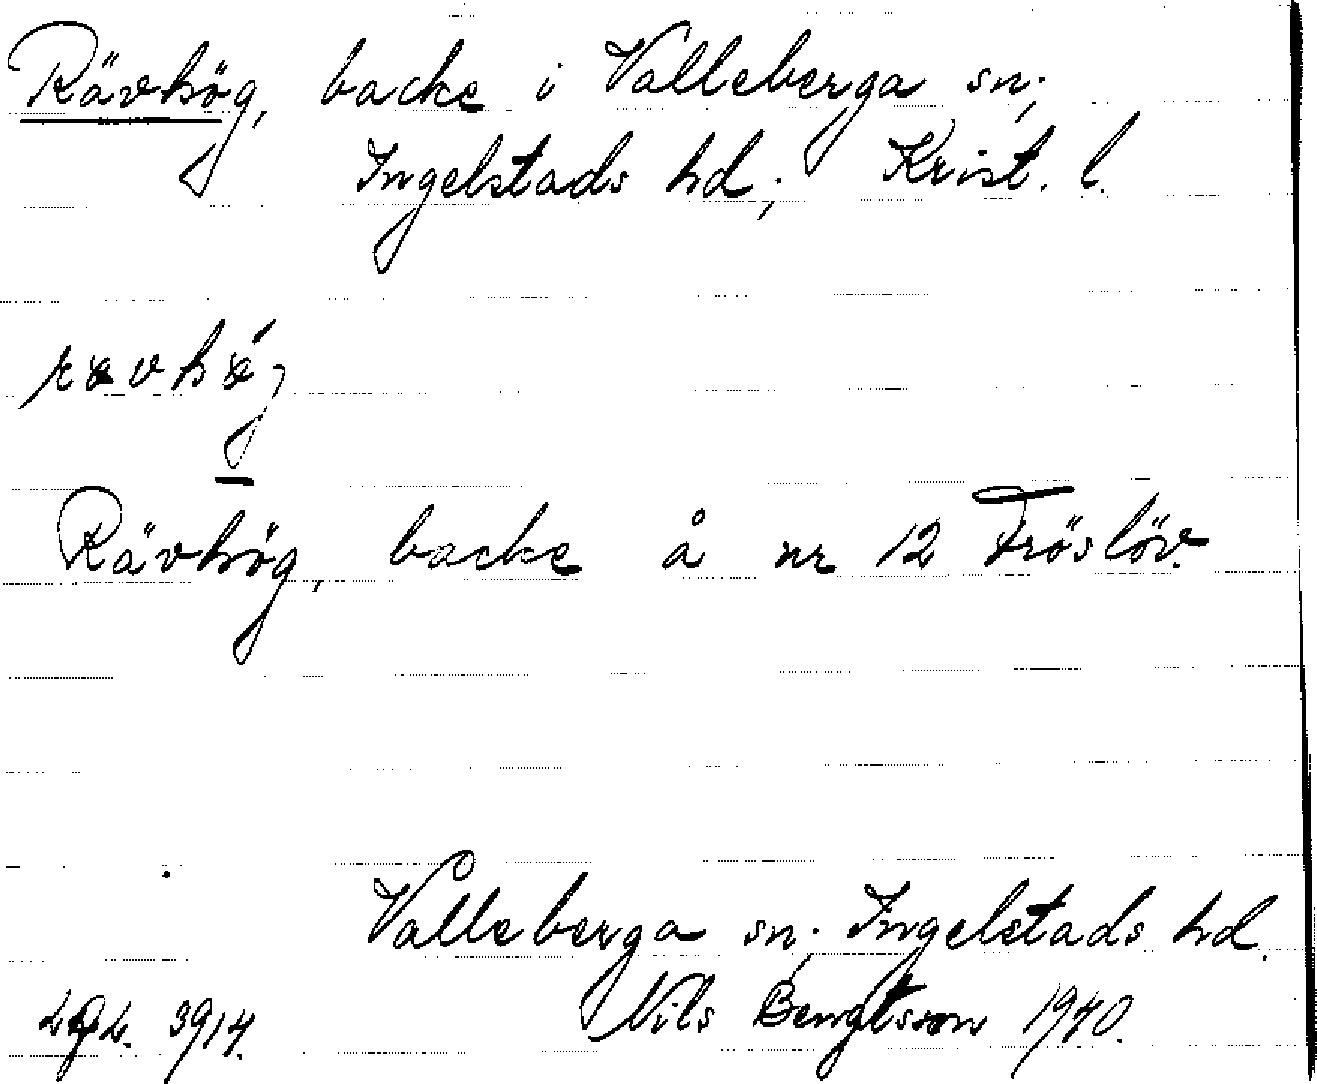 Rävhög, backe i Valleberga sn;
Ingelstads hd; Krist. l.
rævhǿj
Rävhög, backe å nr 12 Fröslöv.
Valleberga sn; Ingelstads hd.
3914. Nils Bengtsson 1940.